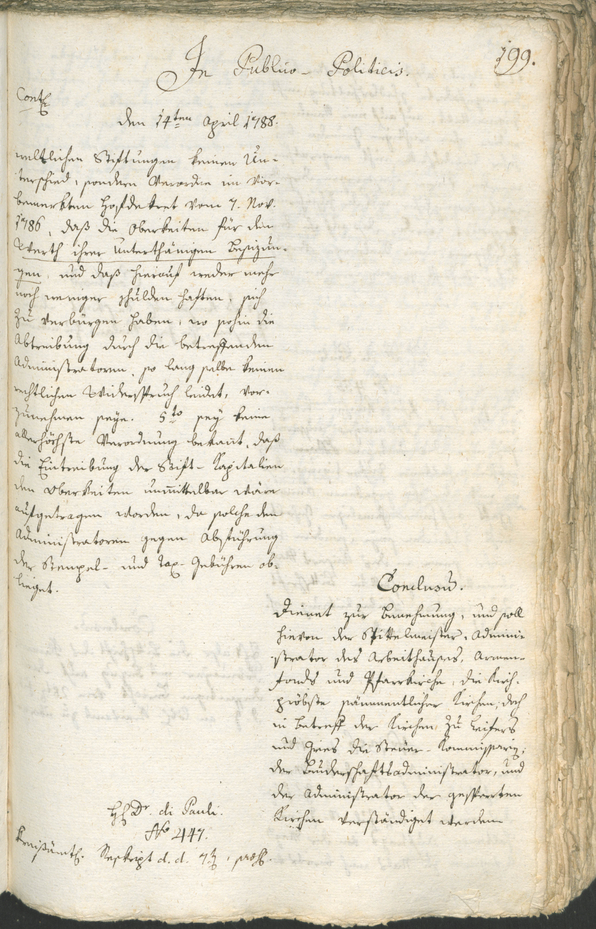 In Publico-Politicis.
199.
Cont:
den 14ten April 1788.
weltlichen Stiftungen keinen Un-
terschied, sondern Verordne im vor-
bemerkten Hofdekret vom 7. Nov.
1786, daß die Oberkeiten für den
Werth ihrer unterthänigen Besizun-
gen, und daß hierauf weder mehr
noch weniger schulden haften, sich
zu verbürgen haben, wo sohin die
Abtreibung durch die betreffenden
Administratoren, so lang selbe keinen
rechtlichen Widerspruch leidet, vor-
zunehmen seye. 5to sey keine
allerhöchste Verordnung bekannt, daß
die Eintreibung der Stift-Kapitalien
den Oberkeiten unmittelbar wäre
aufgetragen worden, da solche den
Administratoren gegen Abführung
der Stempel- und Tax-Gebühren ob-
lieget.
Conclusum.
Dienet zur Benehmung, und soll
hievon der Spittelmeister, Admini-
strator des Arbeithauses, Armen-
fonds und Pfarrkirche, die Kirch-
pröbste sämmentlicher Kirchen, doch
in betreff der Kirchen zu Leifers
und Gries die Steuer-Kommissarien,
der Bruderschaftsadministrator, und
der Administrator der gesperrten
Kirchen verständiget werden
H. Dr. di Pauli.
No 447.
Kreisämtl. Reskript d. d.